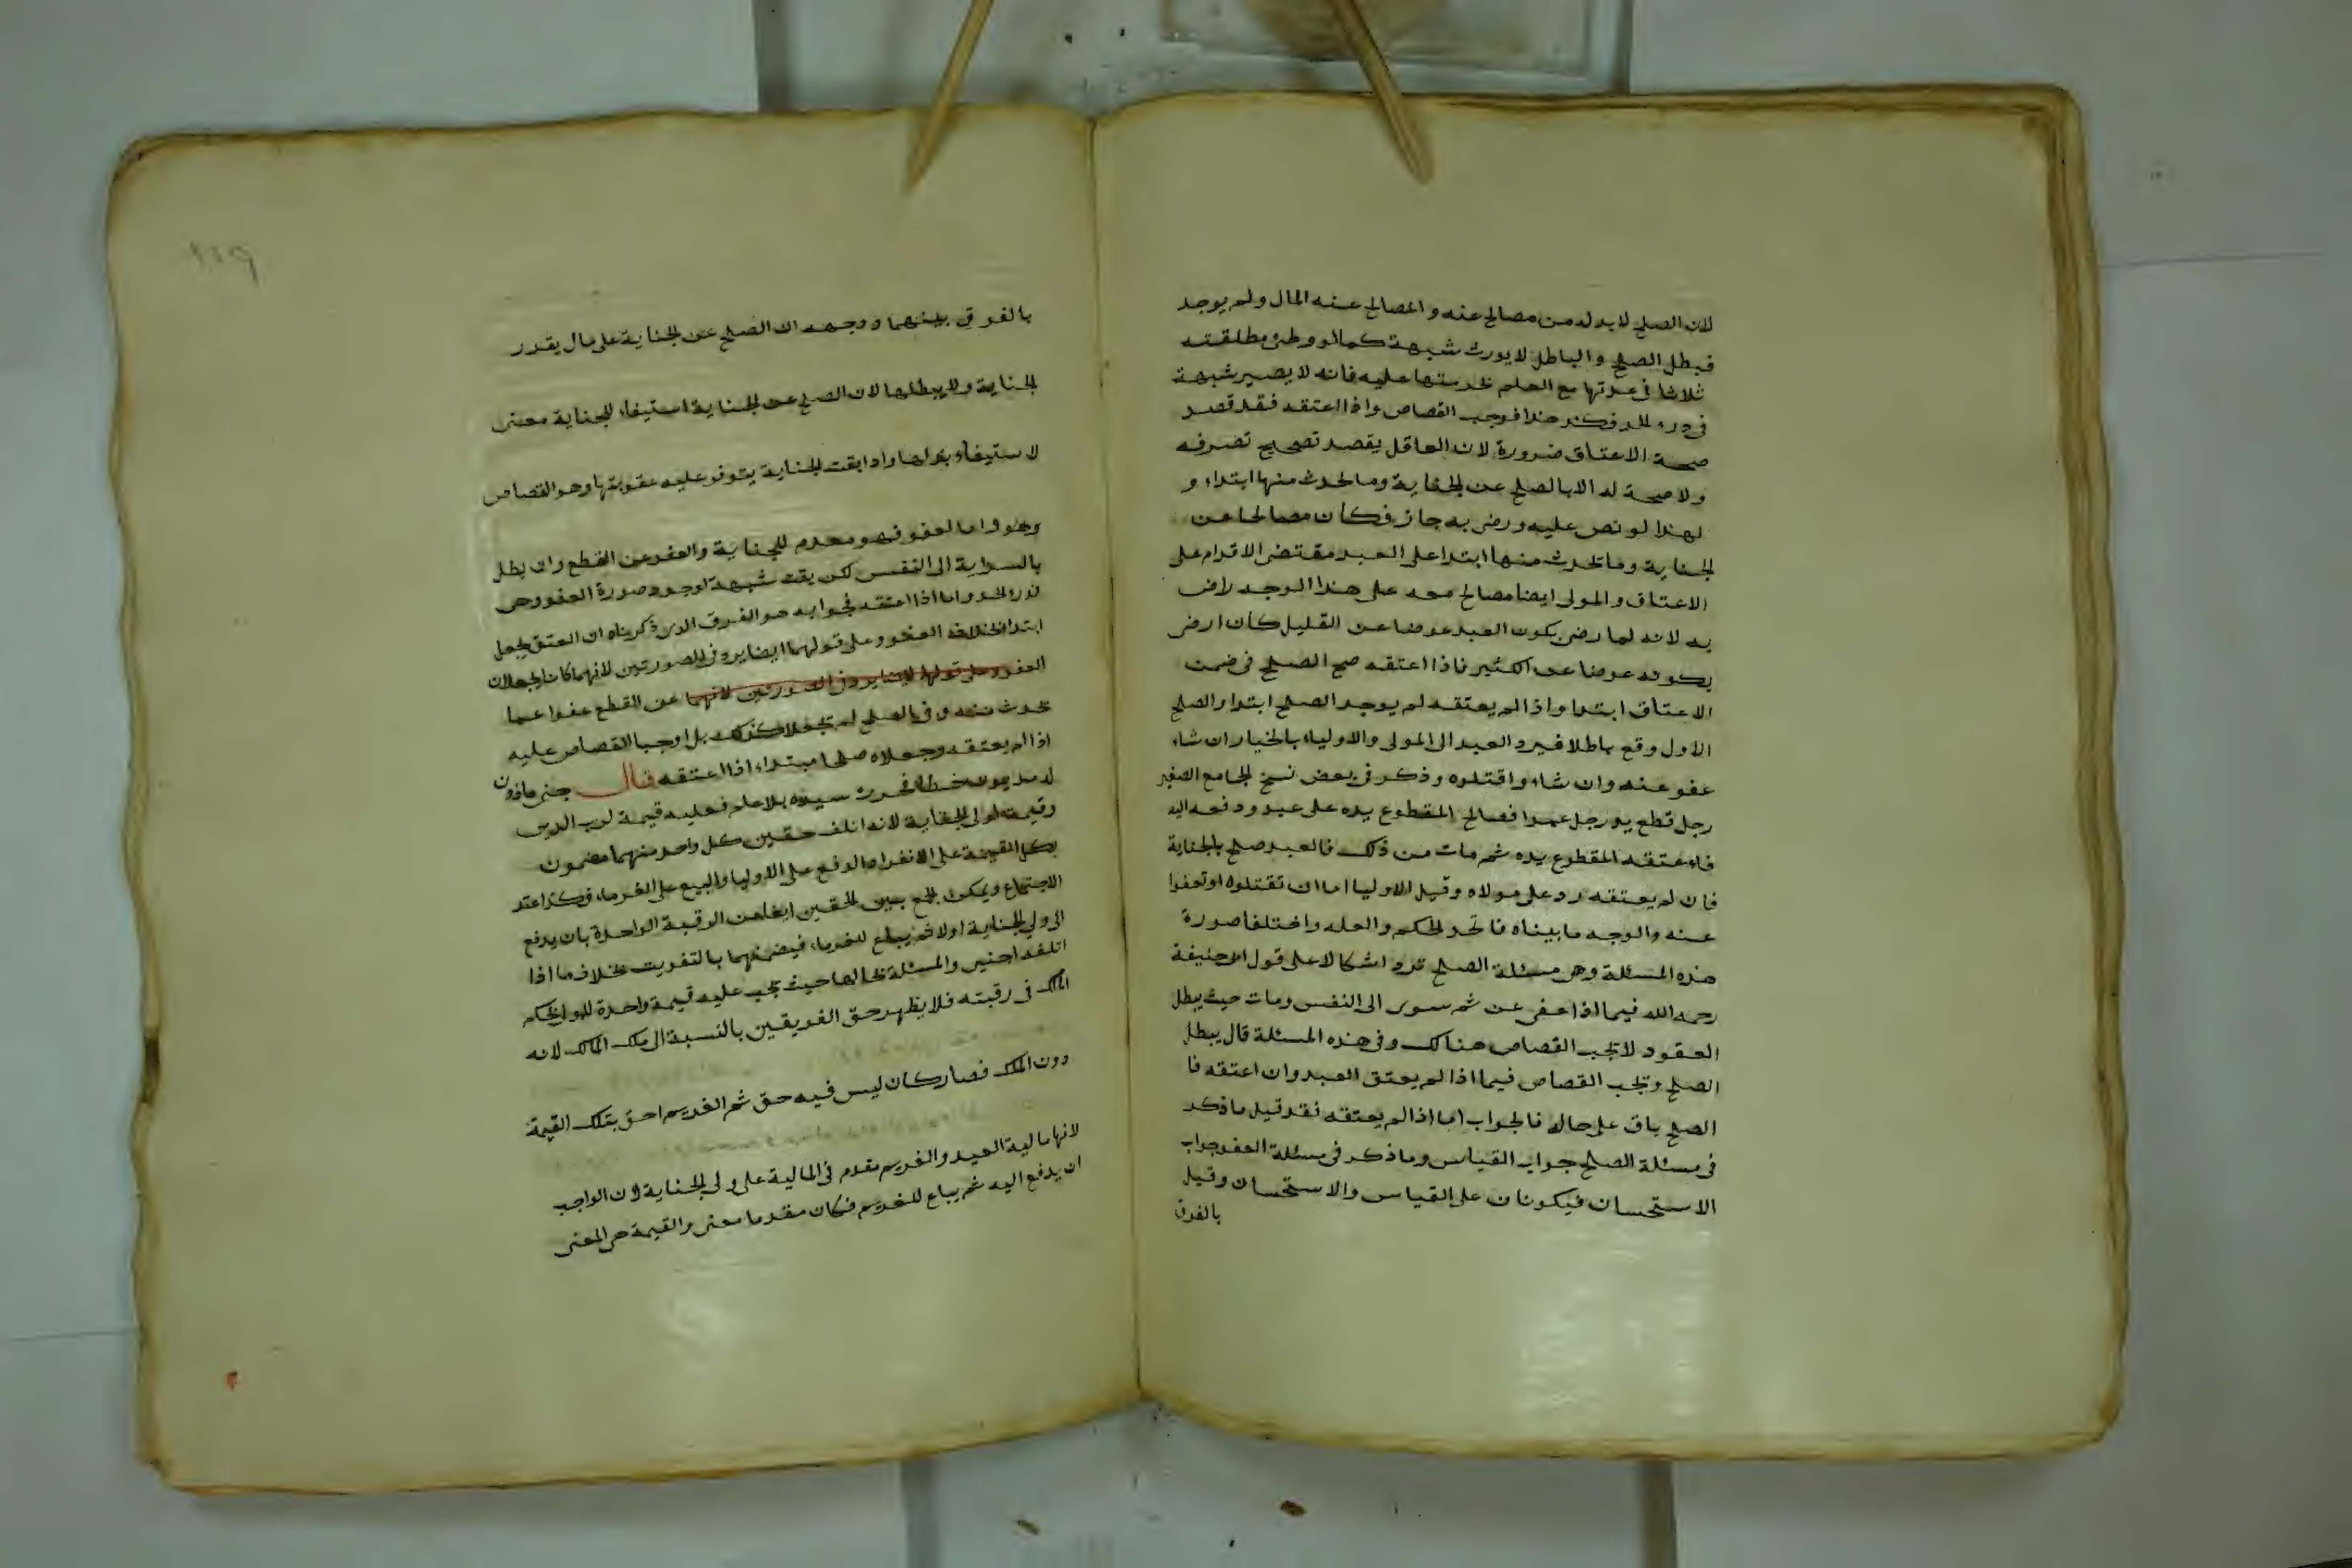 لان الصلح لابد له من مصالح عنه والمصالح عنه المال ولم يوجد
فبطل الصلح والباطل لا يورث شبهة كما لو وطئ مطلقته
ثلاثا في عدتها مع العلم بحرمتها عليه فانه لا يصير شبهة
في درء الحد فكذا هذا فوجب القصاص واذا اعتقه فقد قصد
صحة الاعتاق ضرورة لان العاقل يقصد تصحيح تصرفه
ولا صحة له الا بالصلح عن الجناية وما يحدث منها ابتداء و
لهذا لو نص عليه ورضى به جاز فكان مصالحا عن
الجناية وما يحدث منها ابتدا على العبد مقتضى الاقدام على
الاعتاق والمولى ايضا مصالح معه على هذا الوجه راض
به لانه لما رضى بكون العبد عوضا عن القليل كان ارضى
بكونه عوضا عن الكثير فاذا اعتقه صح الصلح في ضمن
الاعتاق ابتدا واذا لم يعتقه لم يوجد الصلح ابتدا والصلح
الاول وقع باطلا فيرد العبد الى المولى والاولياء بالخيار ان شاء
عفو عنه وان شاء واقتلوه وذكر في بعض نسخ الجامع الصغير
رجل قطع يد رجل عمدا فصالح المقطوع يده على عبد ودفعه اليه
فاعتقه المقطوع يده ثم مات من ذلك فالعبد صلح بالجناية
فان لم يعتقه رد على مولاه وقيل للاوليا اما ان تقتلوه او تعفوا
عنه والوجه ما بيناه فاتحد الحكم والعله واختلفا صورة
هذه المسئلة وهى مسئلة الصلح ترد اشكالا على قول ابى حنيفة
رحمه الله فيما اذا عفى عن ثم سرى الى النفس ومات حيث يبطل
العقود لا تجب القصاص هنالك وفى هذه المسئلة قال يبطل
الصلح وتجب القصاص فيما اذا لم يعتق العبد وان اعتقه فا
الصلح باق على حاله فالجواب اما اذا لم يعتقه فقد قيل ما ذكر
فى مسئلة الصلح جواب القياس وما ذكر فى مسئلة العفو جواب
الاستحسان فيكونان على القياس والاستحسان وقيل
بالفرق
بالفرق بينهما ووجهه ان الصلح عن الجناية على مال يقدر
الجناية ولا يبطلها لان الصلح عن الجناية استيفاء للجناية معنى
لاستيفاء بدلها واذا بقت الجناية يتوفر عليه عقوبتها وهو القصاص
وهو واما العفو فهو معدم للجناية والعفو عن القطع وان بطل
بالسراية الى النفس لكن بقت شبهة لوجود صورة العفو وهى
درء الحد واما اذا اعتقه فجوابه هو الفرق الذى ذكرناه ان العتق يجعل
ابتدا بخلاف العفو وعلى قولهما ايضا يرد فى الصورتين لانهما كانا يجعلان
العفو وعلى قولهما ايضا يرد فى الصورتين لانهما عن القطع عفوا عما
يحدث منه وفى الصلح لم تجعلا كذلك بل اوجبا القصاص عليه
اذا لم يعتقه وجعلاه صلحا مبتداء اذا اعتقه قال جنى ماذون
له مديون خطا فحرره سيده بلا علم فعليه قيمة لرب الدين
وقيمة لولى الجناية لانه اتلف حقين كل واحد منهما مضمون
بكل القيمة على الانفراد الدفع على الاوليا والبيع على الغرماء فكذا عند
الاجتماع ويمكن الجمع بين الحقين ايفا من الرقبة الواحدة بان يدفع
الى ولى الجناية اولا ثم يباع للغرماء فيضمنهما بالتفويت بخلاف ما اذا
اتلفه اجنبى والمسئلة بحالها حيث تجب عليه قيمة واحدة للمولى بحكم
الملك فى رقبته فلا يظهر حق الفريقين بالنسبة الى ملك المالك لانه
دون الملك فصار كان ليس فيه حق ثم الغريم احق بتلك القيمة
لانها مالية العبد والغريم مقدم فى المالية على ولى الجناية لان الواجب
ان يدفع اليه ثم يباع للغريم فكان مقدما معنى والقيمة هى المعنى